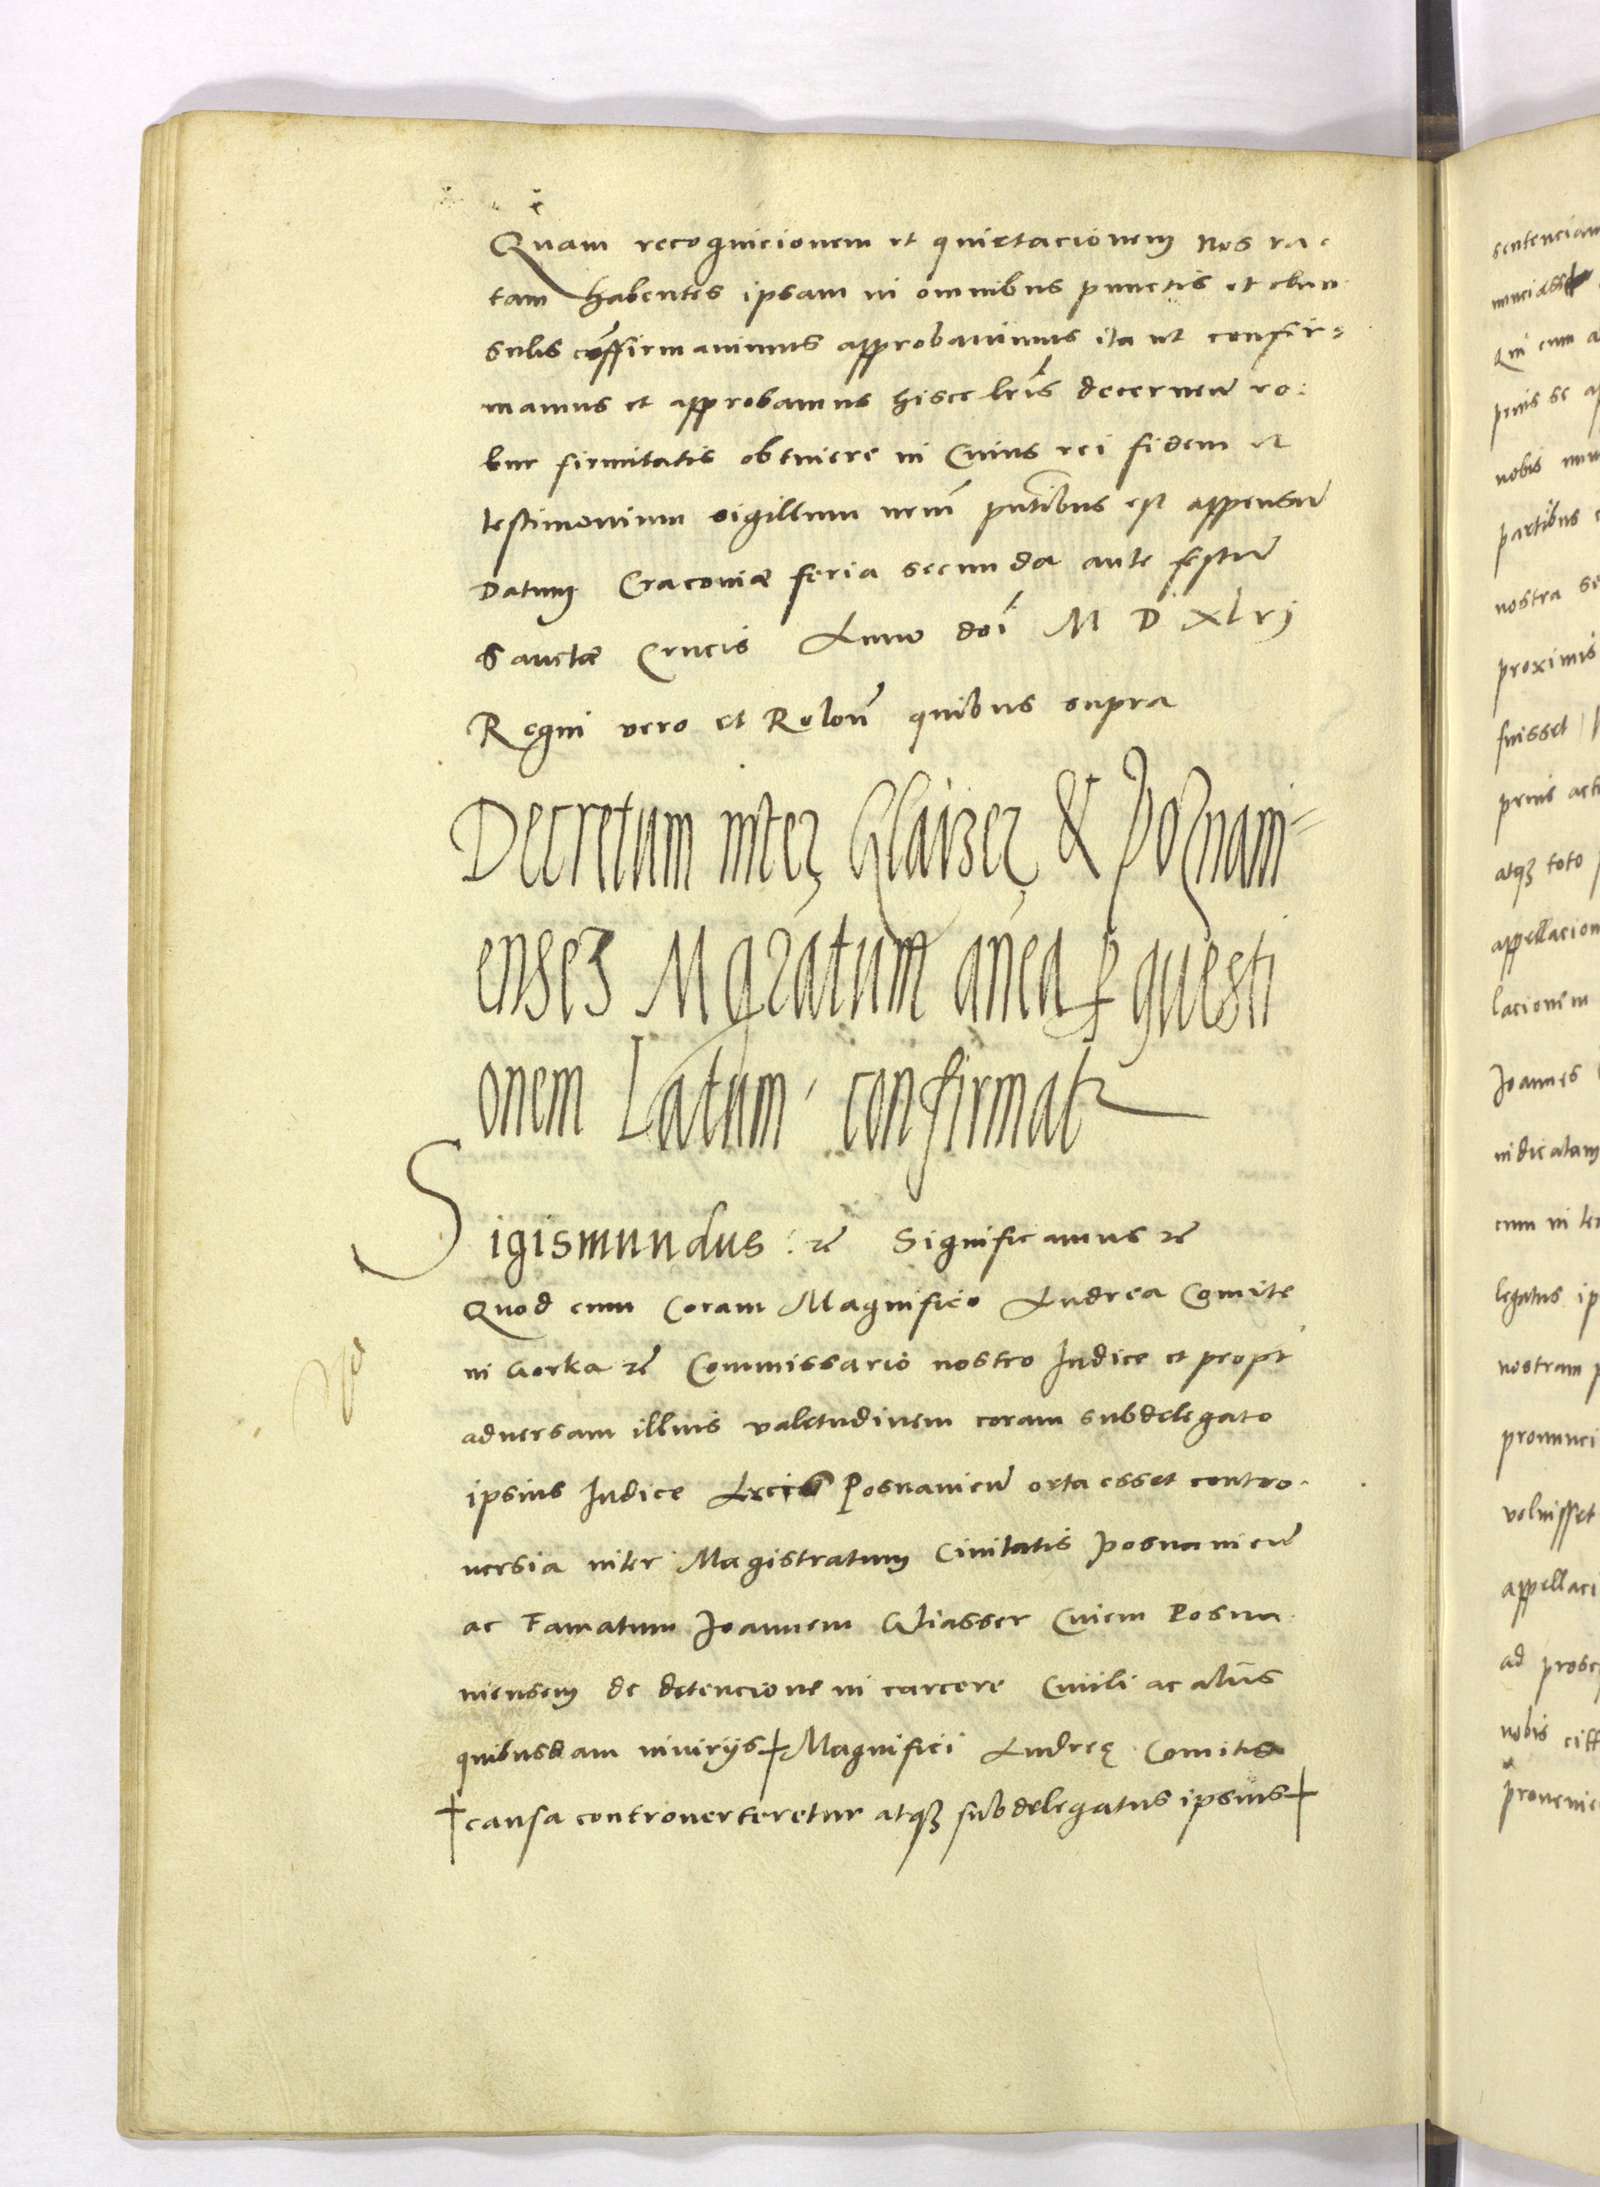 Quam recognicionem et quietacionem nos ra
tam habentes ipsam in omnibus punctis et clau
sulis confirmavimus approbavimus ita ut confir=
mamus et approbamus hisce lris decernen ro:
bur firmitatis obtinere in Cuius rei fidem et
testimonium sigillum nrm pntibus est appensum
Datum Cracoviæ feria secunda ante festum
Sanctæ Crucis Anno doi M D XLVj
Regni vero et Relon quibus supra
Decretum inter Glaiser & Poznani=
enses Mgratum antea questi
onem Latum confirmatr
Sigismundus: rc Significamus rc
Quod cum Coram Magnifico Andrea Comite
in Gorka rc Commissario nostro Iudice et propt
adversam illius valetudinem coram subdelegato
ipsius Iudice Posnanien orta esset contro
versia inter Magistratum Civitatis Posnanien
ac Famatum Joannem Gliasser Civem Posna
niensem de detencione in carcere Civili ac aliis
quibusdam iniuriis+Magnifici Andreę Comitis
+causa controverteretur atq3 subdelegatus ipsius+
sentenciam
Qui cum a
prius se ap
nobis
partibus
nostra se
proximis
fuisset
prius act
atq3 toto p
appellacion
lacionem
Joannes
iudicatam
cum in
legatus ip
nostram p
pronunci
voluisset
appellaci
ad prose
nobis eiff
provenie